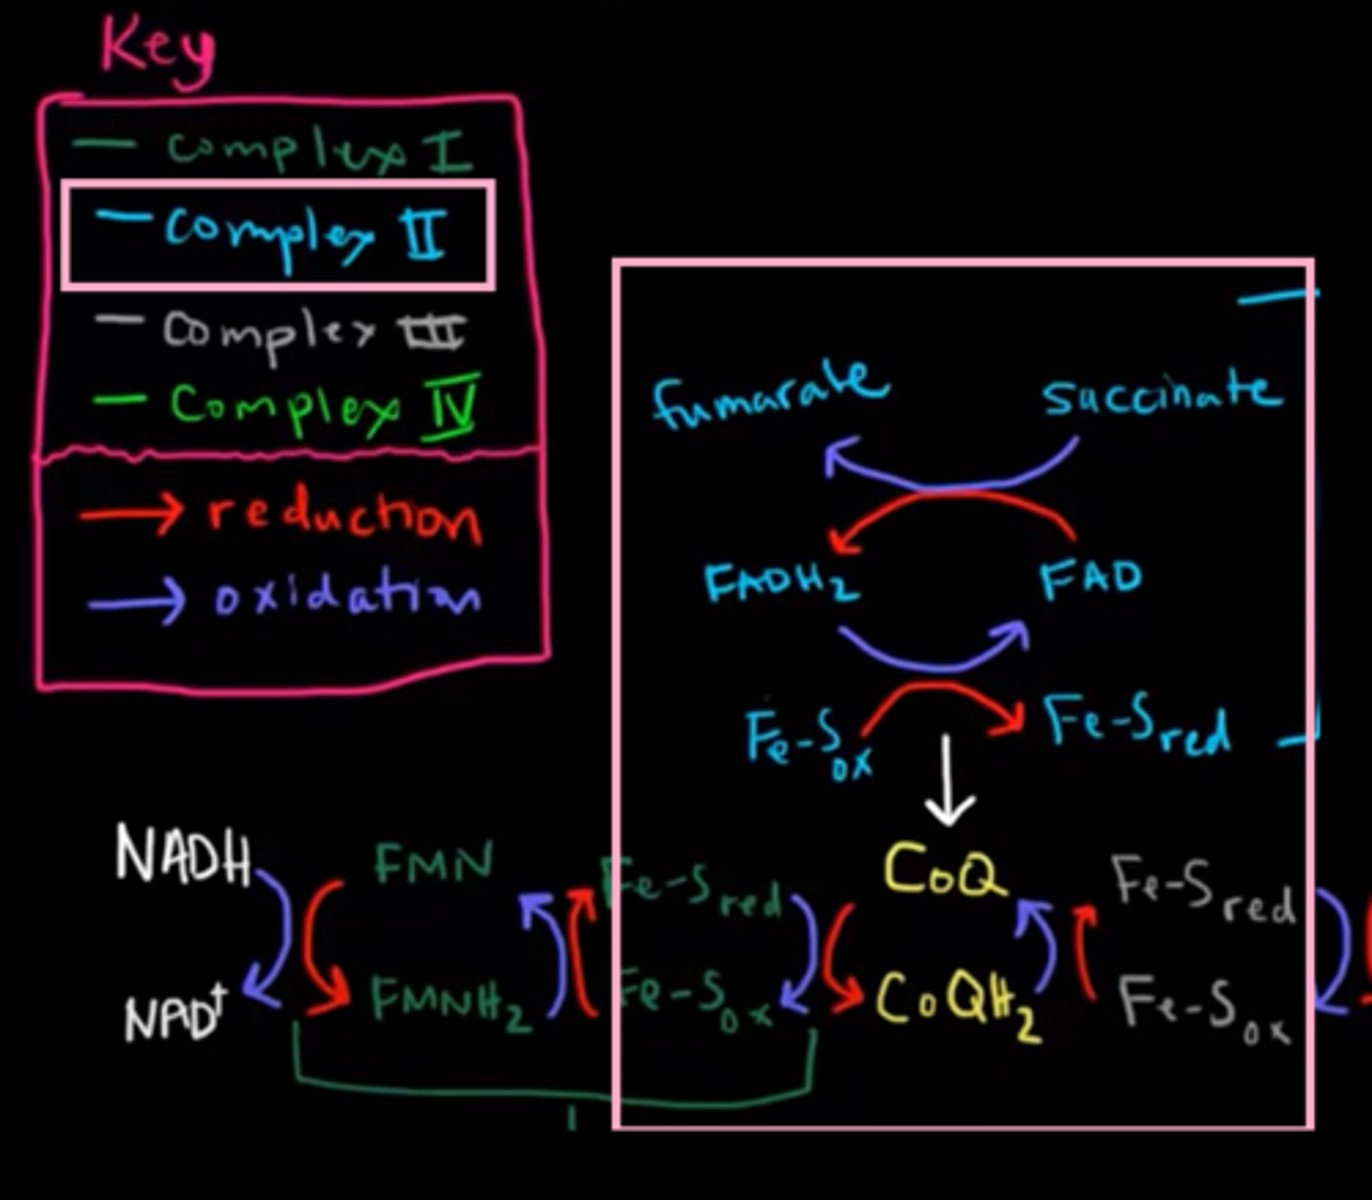 Key
— Complex I
— Complex II
— Complex III
— Complex IV
→ reduction
→ oxidation
fumarate succinate
FADH₂ FAD
Fe-Sox Fe-Sred
NADH FMN Fe-Sred CoQ Fe-Sred
NAD⁺ FMNH₂ Fe-Sox CoQH₂ Fe-Sox